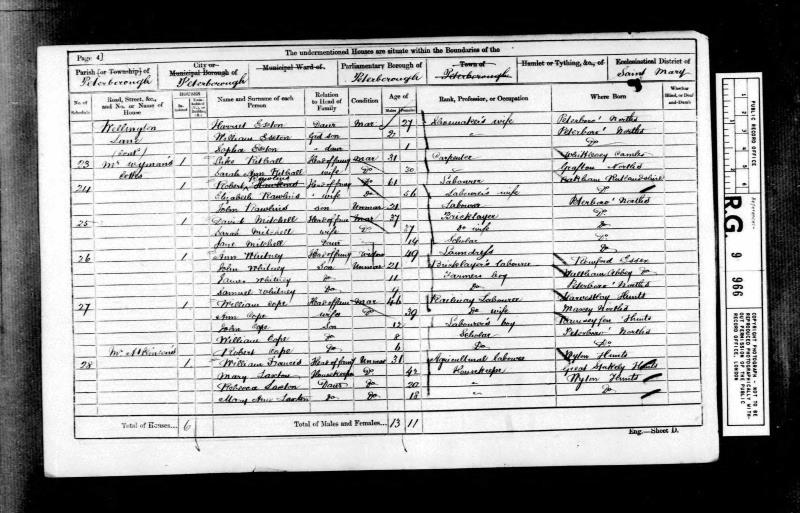 The undermentioned Houses are situate within the Boundaries of the
Page 4]
Parish (or Township) of
Peterborough
City or Municipal Borough of
Peterborough
Municipal Ward of
Parliamentary Borough of
Peterborough
Town of
Peterborough
Hamlet or Tything, &c., of
Ecclesiastical District of
Saint Mary
No. of Schedule
Road, Street, &c., and No. or Name of House
HOUSES
Name and Surname of each Person
Relation to Head of Family
Condition
Age of
Males
Females
Rank, Profession, or Occupation
Where Born
Whether Blind, or Deaf-and-Dumb
Wellington Harriet Daur Mar 27 Shoemaker's wife Peterboro' Northts
Lane William Grd son 2 Peterboro' Northts
Sophia daur 1
23 Mr Wyman's 1 Head of family Mar 31 Carpenter Whittlesey Cambs
Sarah Ann wife Do 30 Grafton Northts
24 1 Robert Rawlins Head of fmy 61 Labourer Oakham Rutlandshire
Elizabeth Rawlins wife Do 56 Labourer's wife Do
John Rawlins son Unmar 21 Labourer Peterbro' Northts
25 1 David Mitchell Head of fam Mar 37 Bricklayer Do
Sarah Mitchell wife Do 37 Do wife Do
Jane Mitchell Daur 14 Scholar Do
26 1 Ann Whitney Head of fmy Widow 49 Laundress Essex
John Whitney Son Unmar 21 Bricklayer's labourer Waltham Abbey Do
James Whitney Do 11 Farmers boy Peterboro' Northts
Samuel Whitney Do 9
27 1 William Cope Head of fam Mar 46 Railway Labourer Hunts
Ann Cope wife Do 39 Do wife Maxey Northts
John Cope son 12 Labourer's boy Hunts
William Cope Do 8 Scholar Peterboro' Northts
Robert Cope Do 6 Do Do
28 Mr Atkinson's 1 William Francis Head of famy Unmar 31 Agricultural labourer Wyton Hunts
Mary Saxton Housekeeper Do 42 Housekeeper Great Hunts
Rebecca Saxton Daur Do 20 Wyton Hunts
Mary Ann Saxton Do Do 18 Do
Total of Houses... 6
Total of Males and Females...
13 11
Eng.—Sheet D.
PUBLIC RECORD OFFICE
Reference:-
R.G. 9 / 966
COPYRIGHT PHOTOGRAPH - NOT TO BE REPRODUCED PHOTOGRAPHICALLY WITHOUT PERMISSION OF THE PUBLIC RECORD OFFICE, LONDON